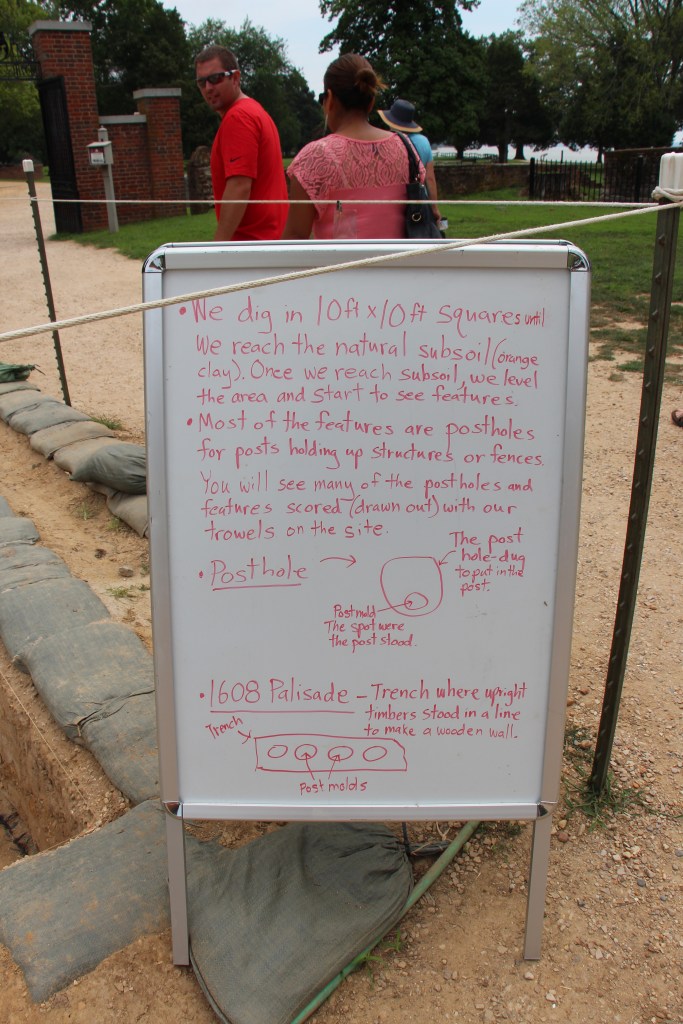 • We dig in 10ft x 10ft squares until
we reach the natural subsoil (orange
clay). Once we reach subsoil, we level
the area and start to see features.
• Most of the features are postholes
for posts holding up structures or fences.
You will see many of the postholes and
features scored (drawn out) with our
trowels on the site.
• Posthole →
The post
hole-dug
to put in the
post.
Postmold
The spot were
the post stood.
• 1608 Palisade - Trench where upright
timbers stood in a line
to make a wooden wall.
Trench
Post molds